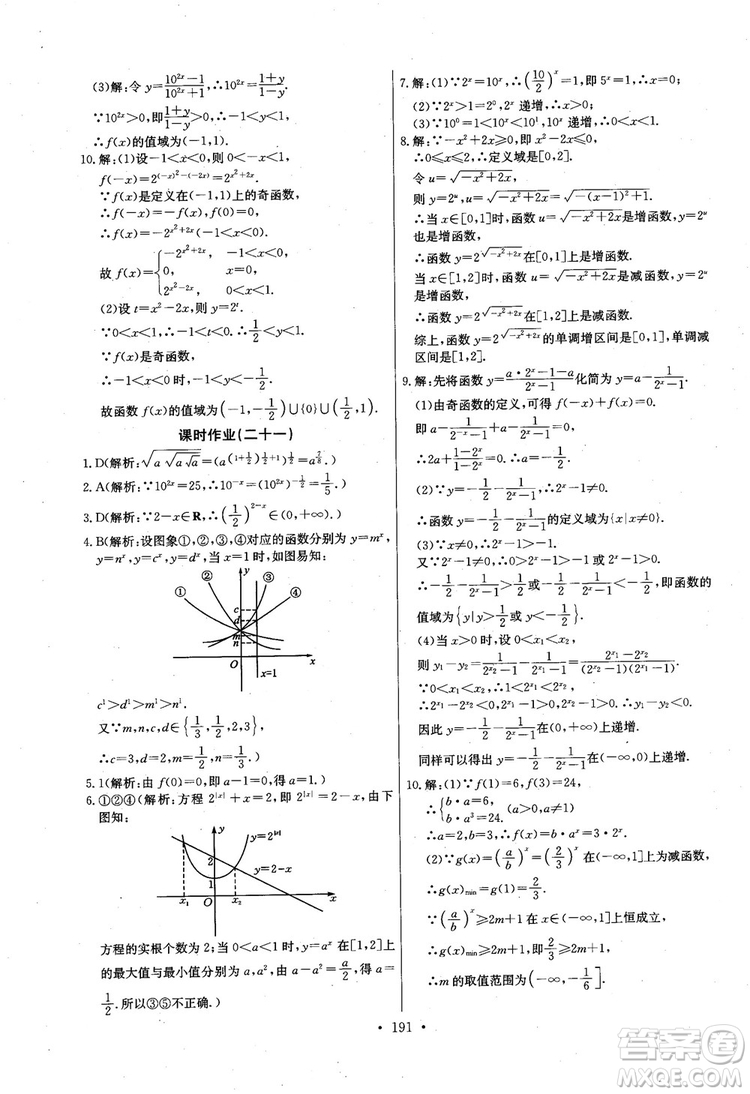 (3)解：令 y=\frac{10^{2x}-1}{10^{2x}+1}，∴10^{2x}=\frac{1+y}{1-y}.
∵10^{2x}>0，即\frac{1+y}{1-y}>0，∴-1<y<1.
∴f(x)的值域为(-1,1).
10.解：(1)设-1<x<0，则 0<-x<1，
f(-x)=2^{(-x)^2-2(-x)}=2^{x^2+2x}.
∵f(x)是定义在(-1,1)上的奇函数，
∴f(-x)=-f(x)，f(0)=0，
∴f(x)=-2^{x^2+2x}(-1<x<0).
故 f(x)=\begin{cases}-2^{x^2+2x}, & -1<x<0,\\0, & x=0,\\2^{x^2-2x}, & 0<x<1.\end{cases}
(2)设 t=x^2-2x，则 y=2^t.
∵0<x<1，∴-1<t<0. ∴\frac{1}{2}<y<1.
∵f(x)是奇函数，
∴-1<x<0时，-1<y<-\frac{1}{2}.
故函数 f(x)的值域为(-1,-\frac{1}{2})∪{0}∪(\frac{1}{2},1).
课时作业(二十一)
1.D(解析：\sqrt{a\sqrt{a\sqrt{a}}}=(a^{(1+\frac{1}{2})\frac{1}{2}+1})^{\frac{1}{2}}=a^{\frac{7}{8}}.)
2.A(解析：∵10^{2x}=25，∴10^{-x}=(10^{2x})^{-\frac{1}{2}}=\frac{1}{5}.)
3.D(解析：∵2-x∈R，∴(\frac{1}{2})^{2-x}∈(0,+∞).)
4.B(解析：设图象①,②,③,④对应的函数分别为 y=m^x，
y=n^x，y=c^x，y=d^x，当 x=1时，如图易知：
y
① ② ③ ④
c
d
m
n
O x=1 x
c^1>d^1>m^1>n^1.
又∵m,n,c,d∈{\frac{1}{3},\frac{1}{2},2,3}，
∴c=3,d=2,m=\frac{1}{2},n=\frac{1}{3}.)
5.1(解析：由 f(0)=0，得 a-1=0，∴a=1.)
6.①②④(解析：方程 2^{|x|}+x=2，即 2^{|x|}=2-x，由下
图知：
y y=2^{|x|}
2
y=2-x
x_1 O x_2 x
方程的实根个数为2；当 0<a<1时，y=a^x 在[1,2]上
的最大值与最小值分别为 a,a^2，由 a-a^2=\frac{a}{2}，得 a=
\frac{1}{2}.所以③⑤不正确.)
7.解：(1)∵2^x=10^x，∴(\frac{10}{2})^x=1，即5^x=1，∴x=0.
(2)∵2^x>1=2^0，2^x 递增，∴x>0.
(3)∵10^0=1<10^x<10^1，10^x 递增，∴0<x<1.
8.解：∵-x^2+2x≥0，即 x^2-2x≤0，
∴0≤x≤2，∴定义域是[0,2].
令 u=\sqrt{-x^2+2x}，
则 y=2^u，u=\sqrt{-x^2+2x}=\sqrt{-(x-1)^2+1}.
∴当 x∈[0,1]时，函数 u=\sqrt{-x^2+2x}是增函数，y=2^u
也是增函数.
∴函数 y=2^{\sqrt{-x^2+2x}}在[0,1]上是增函数.
当 x∈[1,2]时，函数 u=\sqrt{-x^2+2x}是减函数，y=2^u
是增函数.
∴函数 y=2^{\sqrt{-x^2+2x}}在[1,2]上是减函数.
综上，函数 y=2^{\sqrt{-x^2+2x}}的单调增区间是[0,1]，单调减
区间是[1,2].
9.解：先将函数 y=\frac{a·2^x-1-a}{2^x-1}化简为 y=a-\frac{1}{2^x-1}.
(1)由奇函数的定义，可得 f(-x)+f(x)=0，
即 a-\frac{1}{2^{-x}-1}+a-\frac{1}{2^x-1}=0.
∴2a+\frac{1-2^x}{1-2^x}=0，∴a=-\frac{1}{2}.
(2)∵y=-\frac{1}{2}-\frac{1}{2^x-1}，∴2^x-1≠0.
∴函数 y=-\frac{1}{2}-\frac{1}{2^x-1}的定义域为{x|x≠0}.
(3)∵x≠0，∴2^x-1>-1.
∵2^x-1≠0，∴0>2^x-1>-1 或 2^x-1>0.
∴-\frac{1}{2}-\frac{1}{2^x-1}>\frac{1}{2}或-\frac{1}{2}-\frac{1}{2^x-1}<-\frac{1}{2}，即函数的
值域为{y|y>\frac{1}{2}或 y<-\frac{1}{2}}.
(4)当 x>0时，设 0<x_1<x_2，
则 y_1-y_2=\frac{1}{2^{x_2}-1}-\frac{1}{2^{x_1}-1}=\frac{2^{x_1}-2^{x_2}}{(2^{x_2}-1)(2^{x_1}-1)}.
∵0<x_1<x_2，∴1<2^{x_1}<2^{x_2}.
∴2^{x_1}-2^{x_2}<0，2^{x_1}-1>0，2^{x_2}-1>0. ∴y_1-y_2<0.
因此 y=-\frac{1}{2}-\frac{1}{2^x-1}在(0,+∞)上递增.
同样可以得出 y=-\frac{1}{2}-\frac{1}{2^x-1}在(-∞,0)上递增.
10.解：(1)∵f(1)=6，f(3)=24，
∴\begin{cases}b·a=6,\\b·a^3=24.\end{cases}(a>0，a≠1)
∴a=2，b=3，∴f(x)=b·a^x=3·2^x.
(2)∵g(x)=(\frac{a}{b})^x=(\frac{2}{3})^x 在(-∞,1]上为减函数，
∴g(x)_{min}=g(1)=\frac{2}{3}.
∵(\frac{a}{b})^x≥2m+1 在 x∈(-∞,1]上恒成立，
∴g(x)_{min}≥2m+1，即\frac{2}{3}≥2m+1，∴m≤-\frac{1}{6}.
∴m 的取值范围为(-∞,-\frac{1}{6}].
• 191 •
答案圈